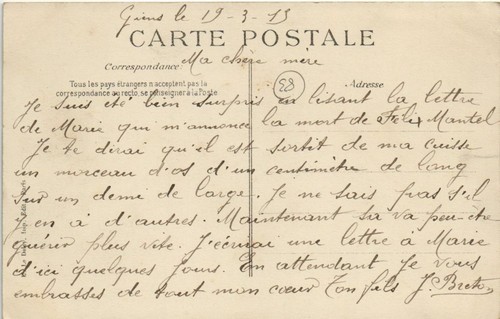 Giens le 19-3-15
CARTE POSTALE
Correspondance Ma chère mère
Tous les pays étrangers n'acceptent pas la
correspondance au recto, se renseigner à la Poste
88
Adresse
Je suis été bien surpris en lisant la lettre
de Marie qui m'annonce la mort de Félix Mantel
Je te dirai qu'il est sortit de ma cuisse
un morceau d'os d'un centimètre de long
sur un demi de large. Je ne sais pas s'il
j'en à d'autres. Maintenant sa va peu-être
guérir plus vite. J'écrirai une lettre à Marie
d'ici quelques jours. En attendant Je vous
embrasses de tout mon coeur Ton fils J. Breton